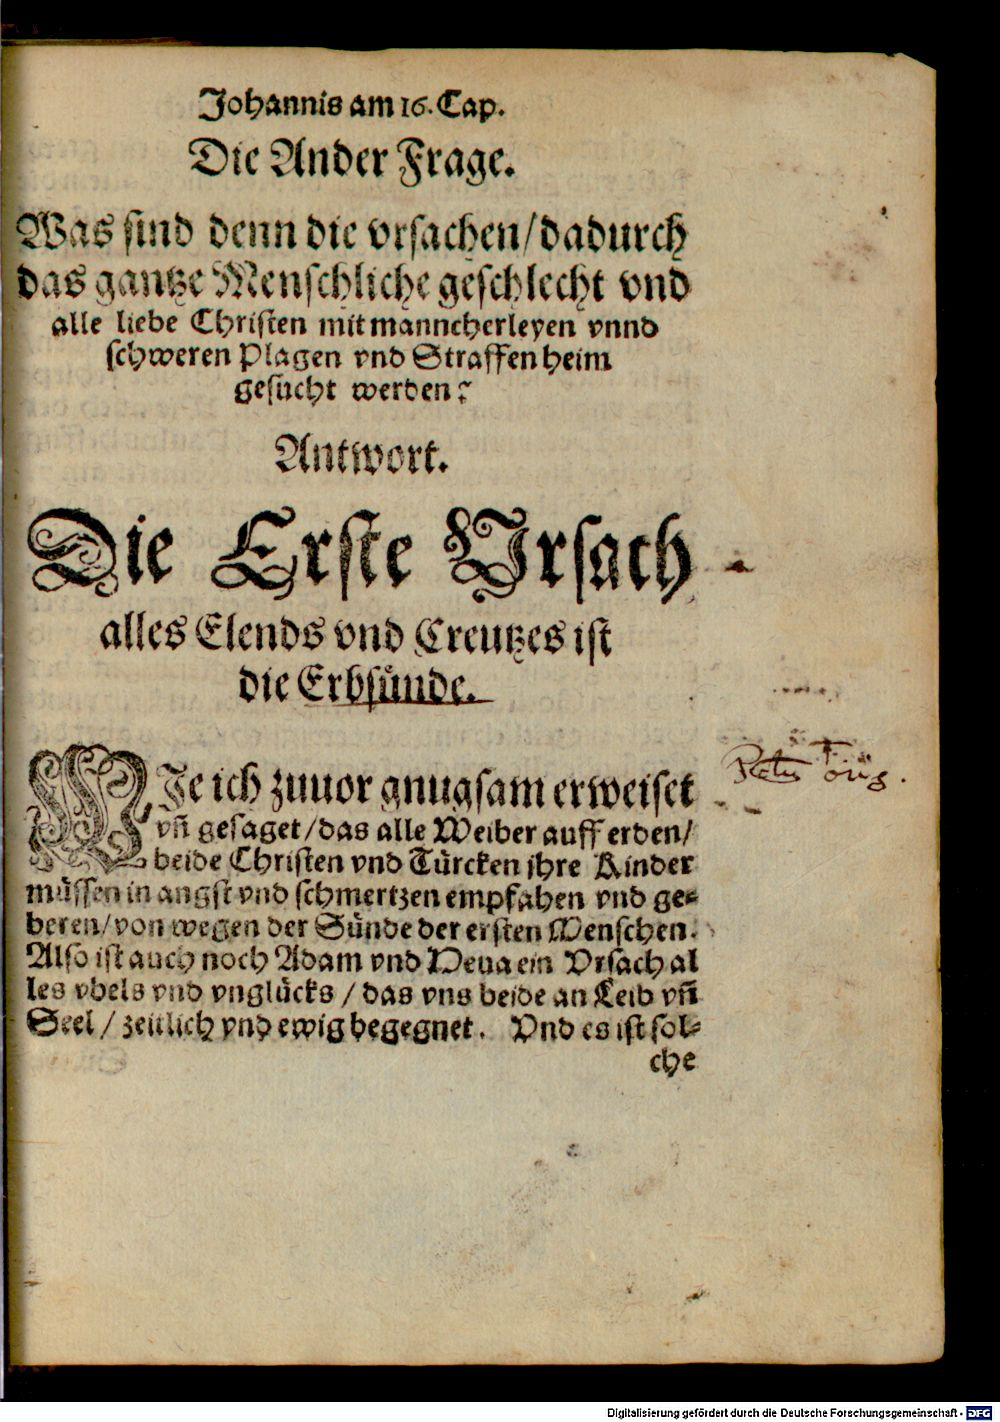 Johannis am 16. Cap.
Die Ander Frage.
Was sind denn die vrsachen/dadurch
das gantze Menschliche geschlecht vnd
alle liebe Christen mit manncherleyen vnnd
schweren Plagen vnd Straffen heim
gesucht werden?
Antwort.
Die Erste Vrsach
alles Elends vnd Creutzes ist
die Erbsünde.
WJe ich zuuor gnugsam erweiset
vn̄ gesaget/das alle Weiber auff erden/
beide Christen vnd Türcken ihre Kinder
müssen in angst vnd schmertzen empfahen vnd ge-
beren/von wegen der Sünde der ersten Menschen.
Also ist auch noch Adam vnd Heua ein Vrsach al
les vbels vnd vnglücks / das vns beide an Leib vn̄
Seel / zeitlich vnd ewig begegnet. Vnd es ist sol-
che
Digitalisierung gefördert durch die Deutsche Forschungsgemeinschaft - DFG